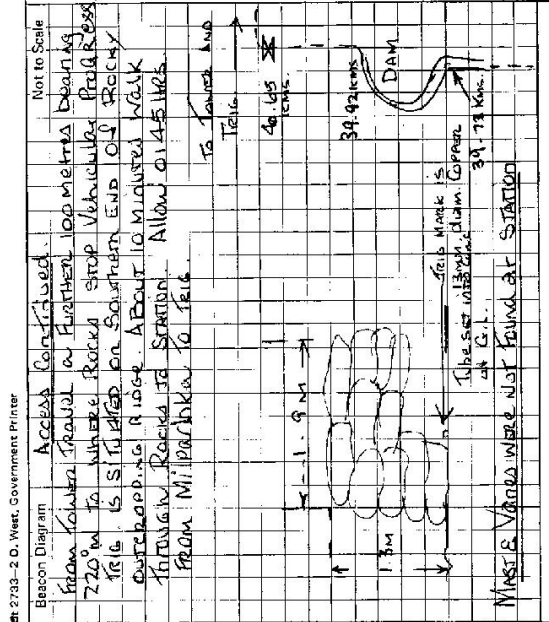 St 2733—2 D. West, Government Printer
Beacon Diagram
Not to Scale
Access Continued.
From Tower Travel a Further 100 metres bearing
220°m to where Rocks Stop Vehicular Progress
Trig is situated on Southern End of Rocky
outcropping Ridge. About 10 minutes Walk
through Rocks to Station. Allow 0145 Hrs.
From Milparinka to Trig.
To Tower and
Trig.
40.65
kms.
39.92 kms.
DAM
39.73 kms.
1.9 M
1.3 M
Trig Mark is
13mm. diam. Copper
Tube set into conc
at G.L.
Mast & Vanes were not found at Station